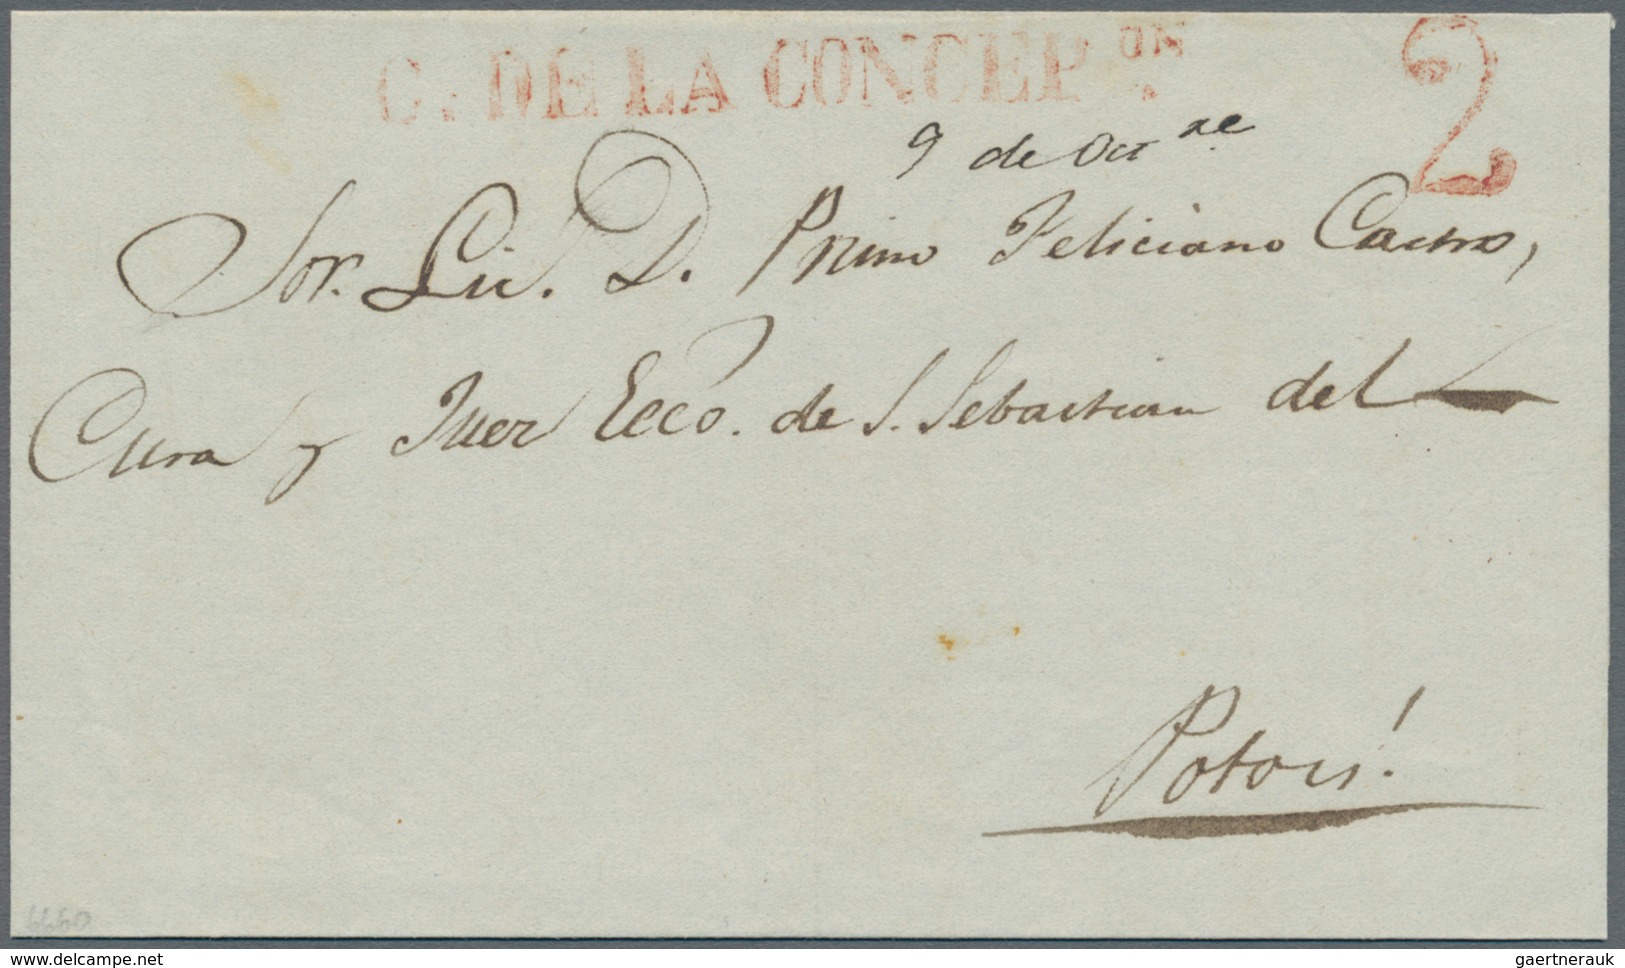 C. DE LA CONCEP.ON
2
9 de Octre
Sor. Lic. D. Primo Feliciano Castro,
Cura y Juez Ecco. de S. Sebastian del
Potosi!
delcampe.net
gaertnerauk